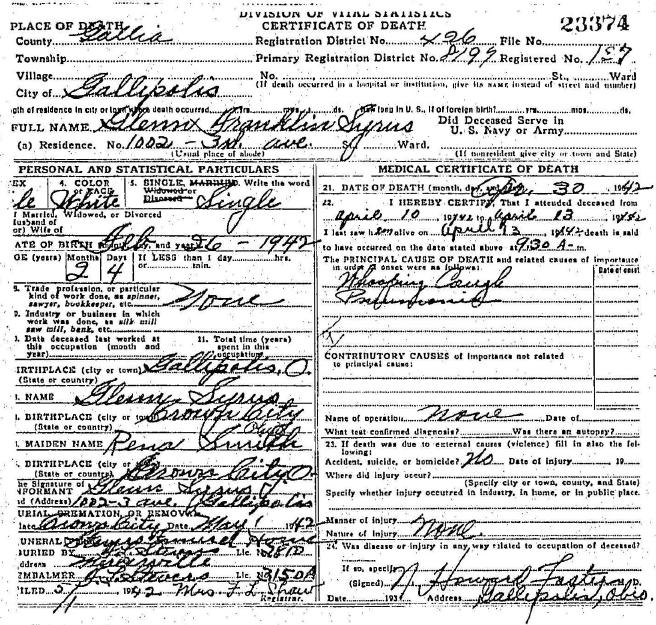 DIVISION OF VITAL STATISTICS
PLACE OF DEATH CERTIFICATE OF DEATH 23374
County Gallia Registration District No. 496 File No.
Township Primary Registration District No. 8199 Registered No. 157
Village No. St., Ward
City of Gallipolis (If death occurred in a hospital or institution, give its NAME instead of street and number)
gth of residence in city or town where death occurred yrs. mos. ds. How long in U. S., if of foreign birth? yrs. mos. ds.
FULL NAME Glenn Franklin Syrus Did Deceased Serve in U. S. Navy or Army
(a) Residence. No. 1002 - 3rd ave. St. Ward.
(Usual place of abode) (If nonresident give city or town and State)
PERSONAL AND STATISTICAL PARTICULARS
EX 4. COLOR or RACE 5. SINGLE, MARRIED, Widowed or Divorced Write the word
le White Single
f Married, Widowed, or Divorced
Husband of
or) Wife of
ATE OF BIRTH (month, day, and year) Feb. 26 - 1942
GE (years) Months Days If LESS than 1 day hrs.
2 4 or min.
8. Trade, profession, or particular
kind of work done, as spinner,
sawyer, bookkeeper, etc. None
9. Industry or business in which
work was done, as silk mill
saw mill, bank, etc.
). Date deceased last worked at
this occupation (month and
year)
11. Total time (years)
spent in this
occupation
IRTHPLACE (city or town) Gallipolis, O.
(State or country)
. NAME Glenn Syrus
. BIRTHPLACE (city or town) Crown City
(State or country) Ohio
. MAIDEN NAME Rena Smith
. BIRTHPLACE (city or
(State or country) Crown City O.
he Signature of
NFORMANT Glenn Syrus
nd (Address) 1002-3 ave. Gallipolis
URIAL, CREMATION, OR REMOVAL
lace Crown City Date May 1 1942
UNERAL Funeral Home
BURIED BY Stevers Lic. No.
ddress
EMBALMER Stevers Lic. No. 3150A
ILED 5/1 1942 Mrs. F. L. Shaw
Registrar.
MEDICAL CERTIFICATE OF DEATH
21. DATE OF DEATH (month, day, and year) Apr. 30 1942
22. I HEREBY CERTIFY, That I attended deceased from
April 10 1942 to April 23 1942
I last saw him alive on April 23 1942 death is said
to have occurred on the date stated above at 9:30 A-m.
The PRINCIPAL CAUSE OF DEATH and related causes of importance
in order of onset were as follows: Date of onset
Whooping Cough
Pneumonia
CONTRIBUTORY CAUSES of importance not related
to principal cause:
Name of operation None Date of
What test confirmed diagnosis? Was there an autopsy?
23. If death was due to external causes (violence) fill in also the following:
Accident, suicide, or homicide? No Date of injury 19
Where did injury occur?
(Specify city or town, county, and State)
Specify whether injury occurred in industry, in home, or in public place.
Manner of injury
Nature of injury None.
24. Was disease or injury in any way related to occupation of deceased?
If so, specify
(Signed) N. Howard Foster M. D.
Date 193 Address Gallipolis, Ohio.